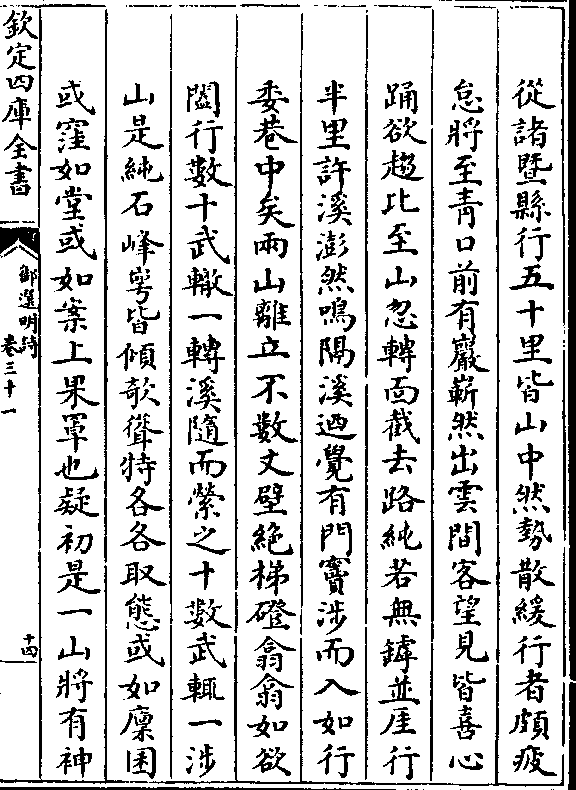 從諸暨縣行五十里皆山中然勢散緩行者頗疲
怠將至青口前有巖嶄然出雲間客望見皆喜心
踊欲趨比至山忽轉面截去路純若無罅並厓行
半里許溪澎然鳴隔溪迺覺有門竇涉而入如行
委巷中矣兩山離立不數丈壁絶梯磴翕翕如欲
闔行數十武轍一轉溪隨而縈之十數武輒一涉
山是純石峰崿皆傾欹聳特各各取態或如廩囷
或窪如堂或如案上果罩也疑初是一山將有神
欽定四庫全書
御選明詩
卷三十一
十四